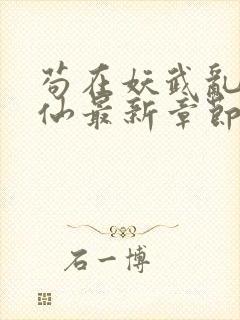 苟在妖武乱
仙最新章節
石一博